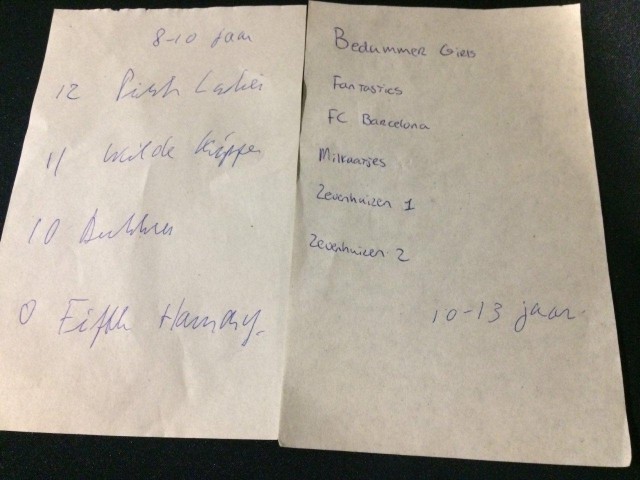 8-10 jaar
12 Pink Ladies
11 Wilde Kippen
10
0 Fifth Harmony.
Bedummer Girls
Fantasties
FC Barcelona
Milkaatjes
Zevenhuizen 1
Zevenhuizen 2
10-13 jaar.